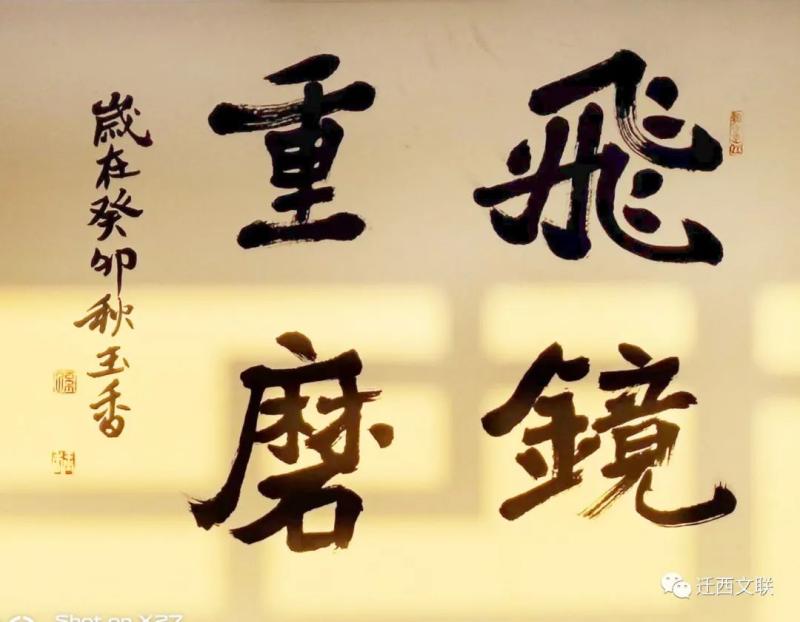 飛鏡
重磨
歲在癸卯秋玉香
迁西文联
Shot on X27